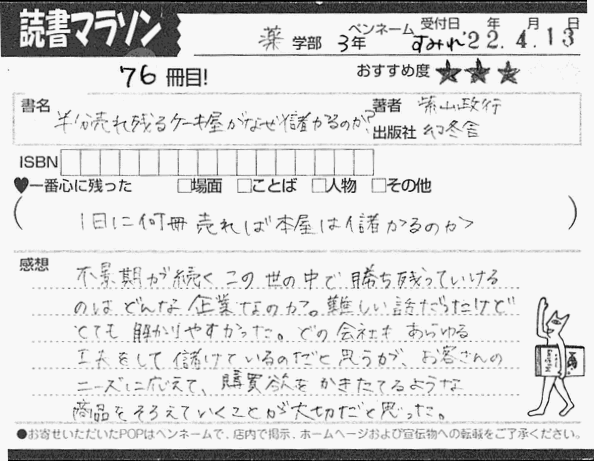 読書マラソン
薬 学部 3年 ペンネーム すみれ 受付日 '22年 4月 13日
76 冊目! おすすめ度 ★★★
書名 半分売れ残るケーキ屋がなぜ儲かるのか? 著者 柴山政行
出版社 幻冬舎
ISBN
♥一番心に残った □場面 □ことば □人物 □その他
(1日に何冊売れば本屋は儲かるのか)
感想
不景期が続くこの世の中で勝ち残っていける
のはどんな企業なのか。難しい話だったけど
とても解かりやすかった。どの会社もあらゆる
工夫をして儲けているのだと思うが、お客さんの
ニーズに応えて、購買欲をかきたてるような
商品をそろえていくことが大切だと思った。
●お寄せいただいたPOPはペンネームで、店内で掲示、ホームページおよび宣伝物への転載をご了承ください。